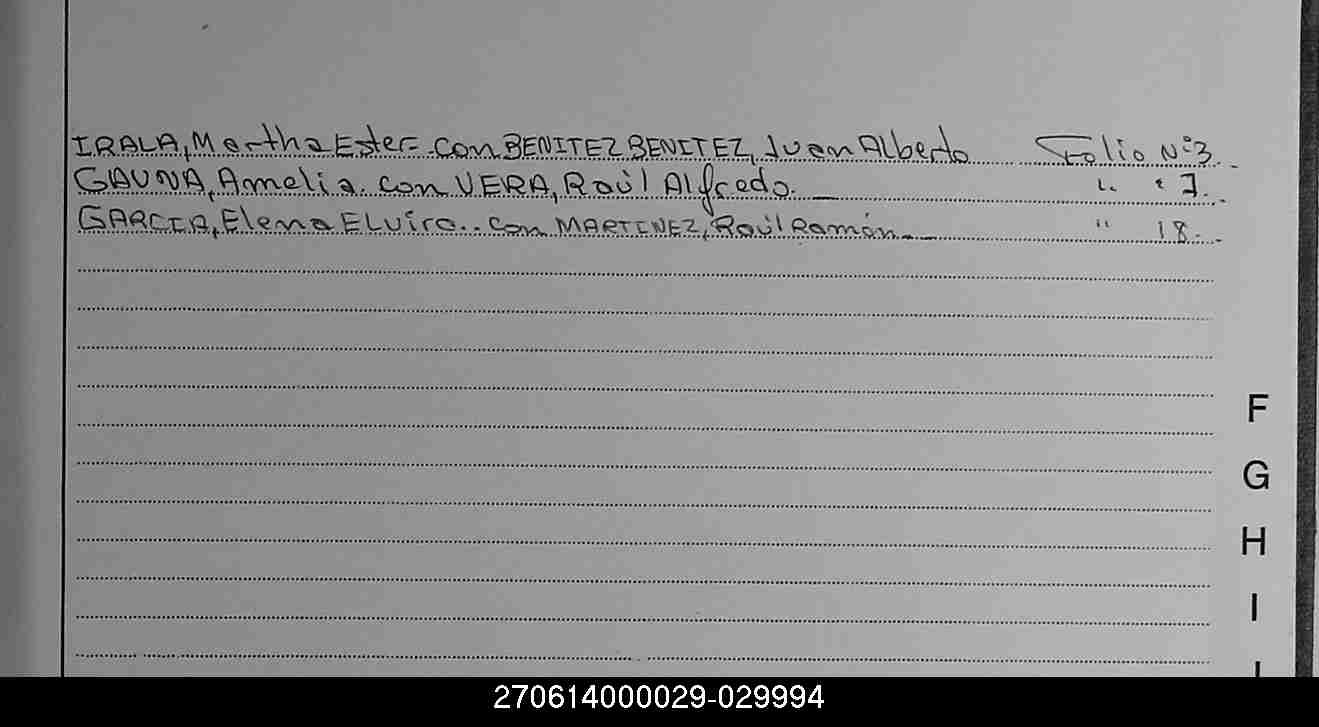 IRALA, Martha Ester. con BENITEZ BENITEZ, Juan Alberto Folio N° 3.
GAUNA, Amelia. con VERA, Raúl Alfredo. " " 7.
GARCIA, Elena ELvira.. con MARTINEZ, Raúl Ramón. " 18.
F
G
H
I
270614000029-029994